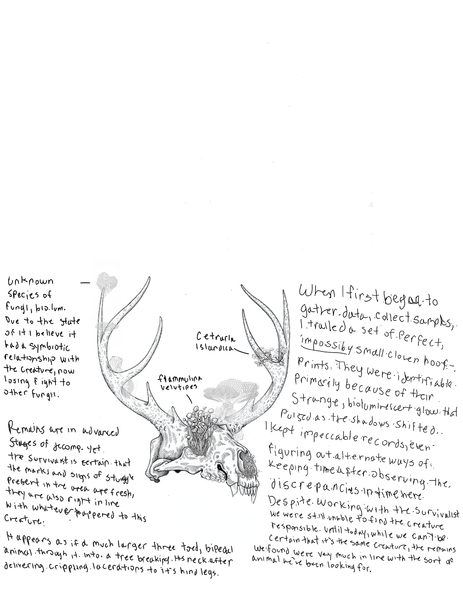 Unknown
species of
fungi, biolum.
Due to the state
of it I believe it
had a symbiotic
relationship with
the creature, now
losing fight to
other fungii.
Remains are in advanced
stages of decomp. yet
the survivalist is certain that
the marks and signs of stuggle
present in the area are fresh,
they are also right in line
with whatever happened to this
creature:
It appears as if a much larger three toed, bipedal
animal through it. into. a tree breaking. Its neck after
delivering. crippling. lacerations to it's hind legs.
flammulina
velutapes
Cetraria
Islandica
When I first began to
gather data, collect samples,
I trailed a set of perfect,
impossibly small cloven hoof-
prints. They were identifiable
primarily because of their
strange, bioluminescent glow that
pulsed as the shadows shifted..
I kept impeccable records, even
figuring out alternate ways of
keeping time after observing the
discrepancies in time here.
Despite. working with the survivalist
we were still unable to find the creature
responsible. Until today, while we can't be
certain that it's the same creature, the remains
we found were very much in line with the sort of
animal we've been looking for.